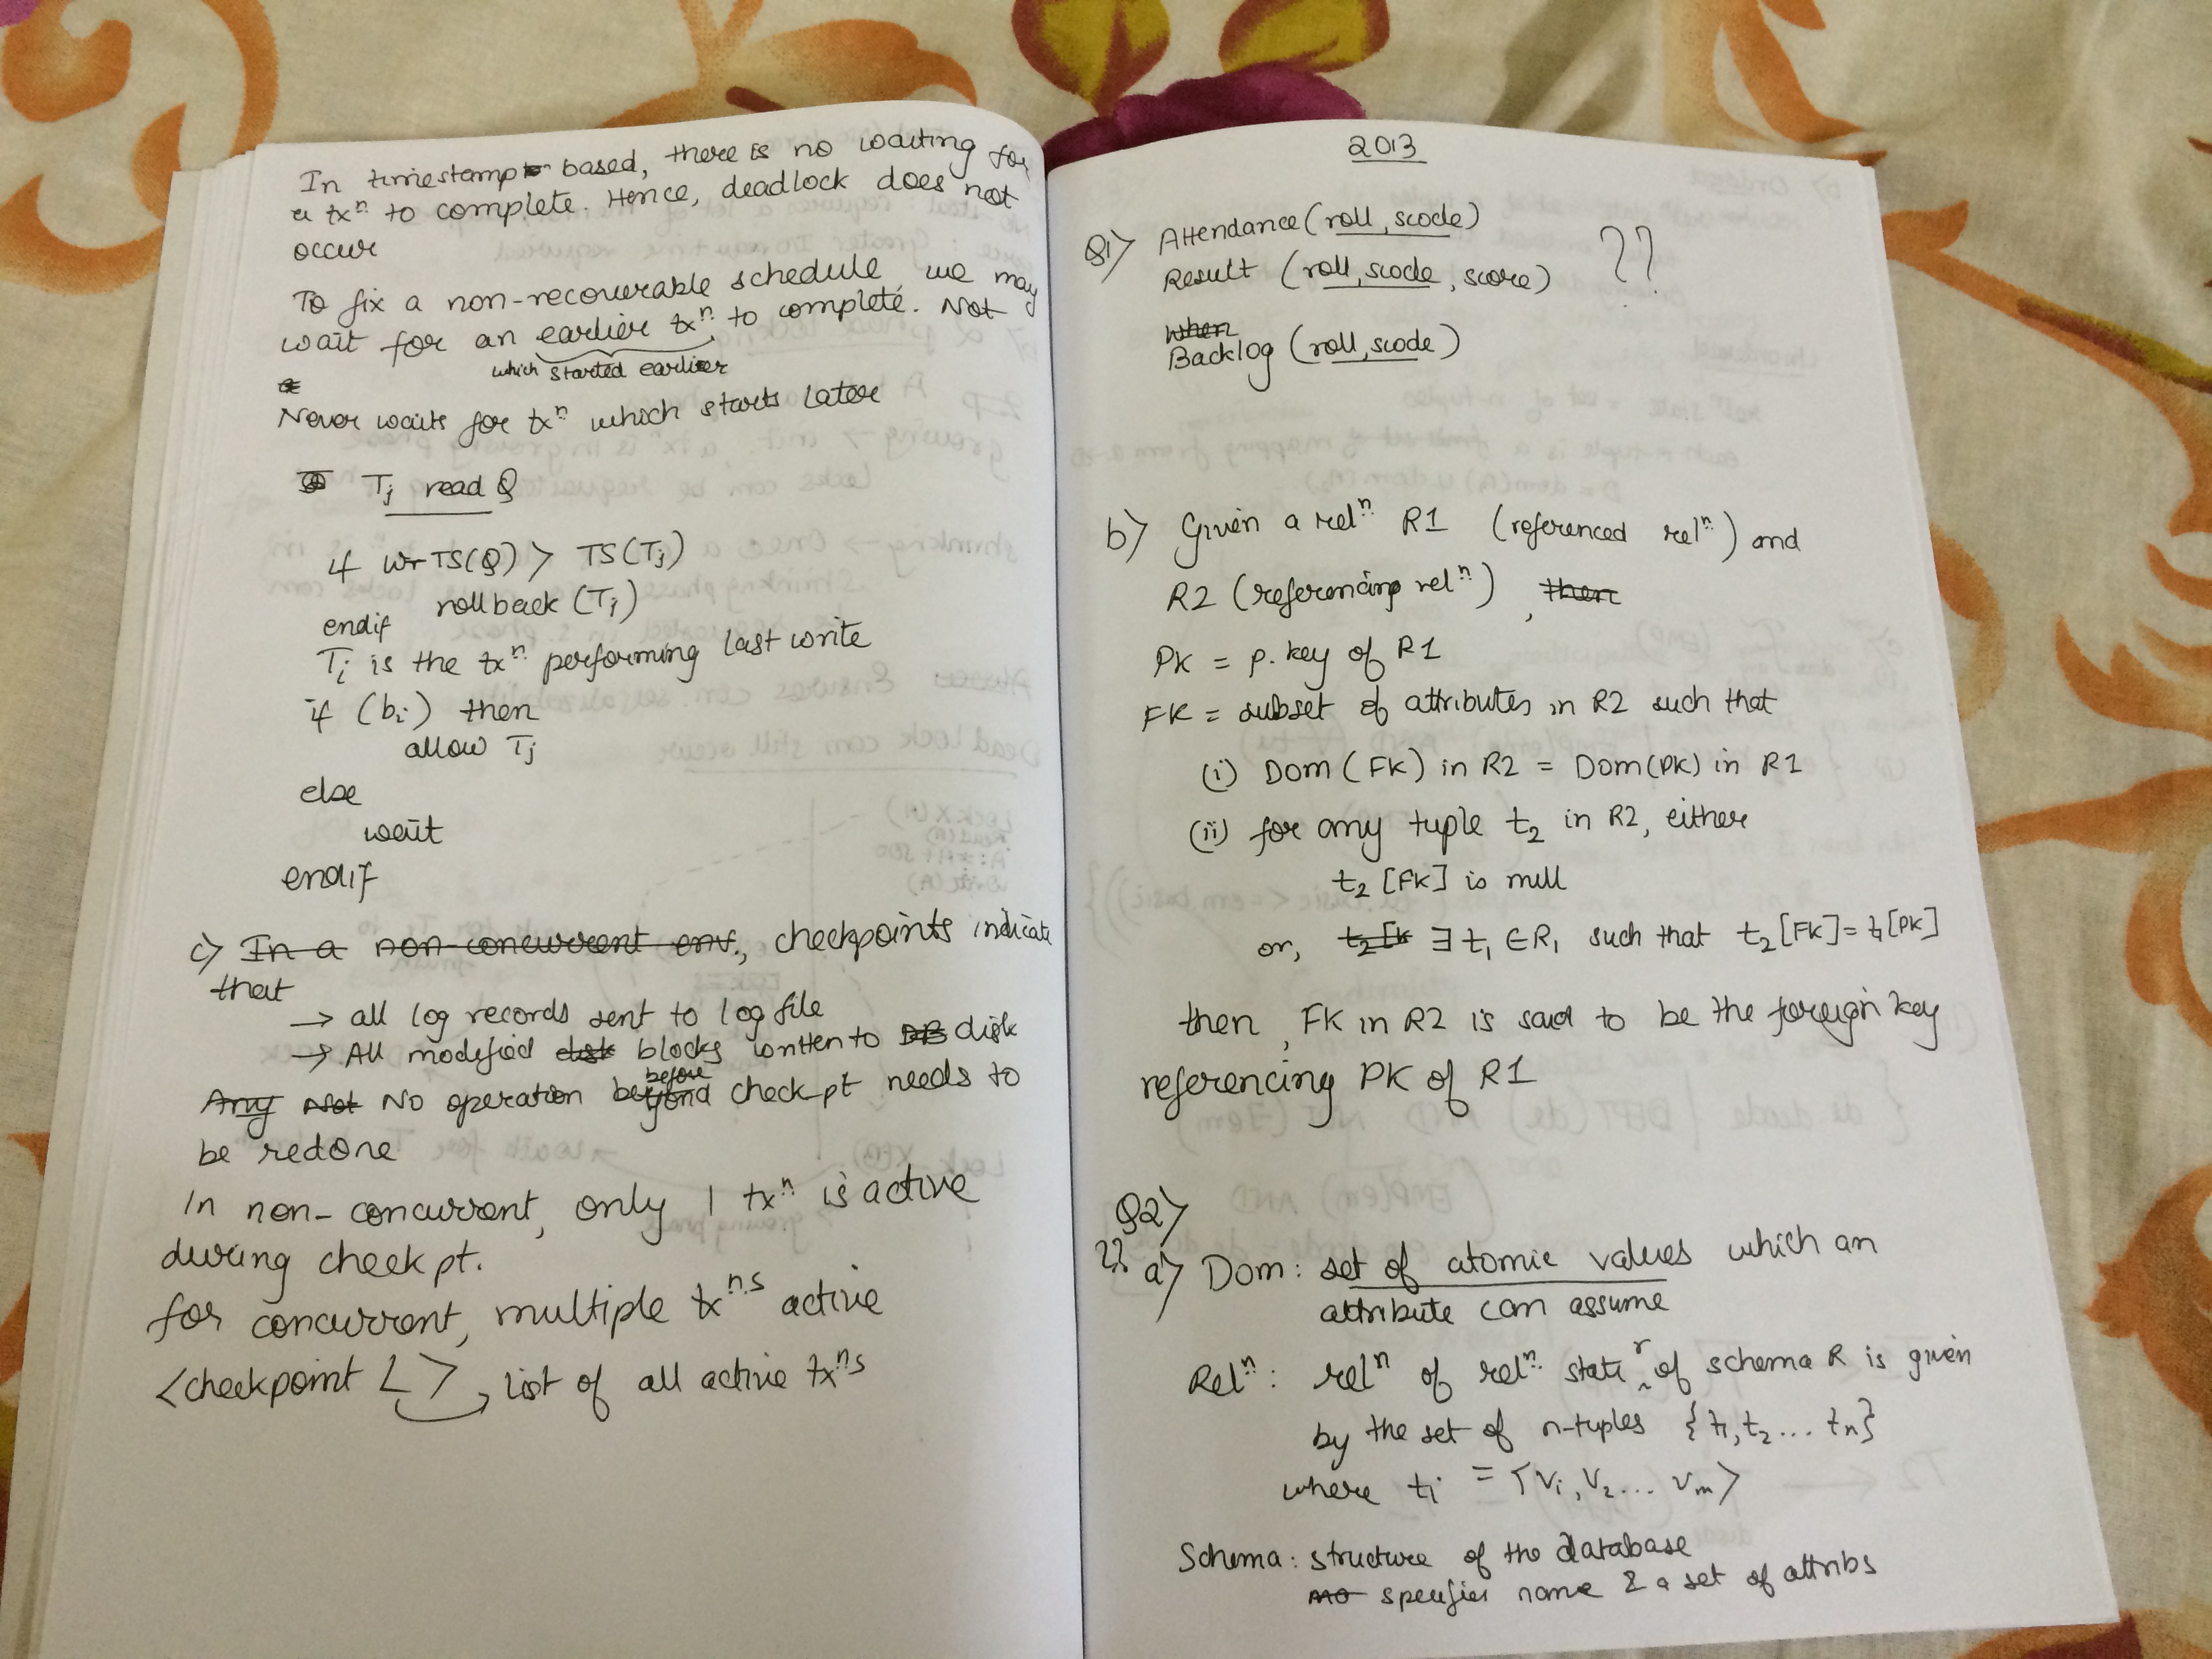 In timestamp based, there is no waiting for
a txⁿ to complete. Hence, deadlock does not
occur
To fix a non-recourable schedule, we may
wait for an earlier txⁿ to complete. Not
which started earlier
Never waits for txⁿ which starts later
Tj read Q
if wr TS(Q) > TS(Tj)
rollback (Tj)
endif
Ti is the txⁿ performing last write
if (bi) then
allow Tj
else
wait
endif
c) In a non-concurrent env., checkpoints indicate
that
→ all log records sent to log file
→ All modified disk blocks written to DB disk
Any Not No operation beyond before check pt needs to
be redone
In non-concurrent, only 1 txⁿ is active
during check pt.
for concurrent, multiple txⁿˢ active
<checkpoint L>, list of all active txⁿˢ
2013
Q1) Attendance (roll, scode)
Result (roll, scode, score) ??
when
Backlog (roll, scode)
b) Given a relⁿ R1 (referenced relⁿ) and
R2 (referencing relⁿ), then
PK = p. key of R1
FK = subset of attributes in R2 such that
(i) Dom (FK) in R2 = Dom(PK) in R1
(ii) for any tuple t₂ in R2, either
t₂ [FK] is null
or, t₂[k ∃ t₁ ∈ R₁ such that t₂[FK] = t₁[PK]
then, FK in R2 is said to be the foreign key
referencing PK of R1
Q2)
?? a) Dom: set of atomic values which an
attribute can assume
Relⁿ: relⁿ of relⁿ state r of schema R is given
by the set of n-tuples {t₁, t₂... tₙ}
where ti = <v₁, v₂... vₘ>
Schema: structure of the database
specifies name & a set of attribs